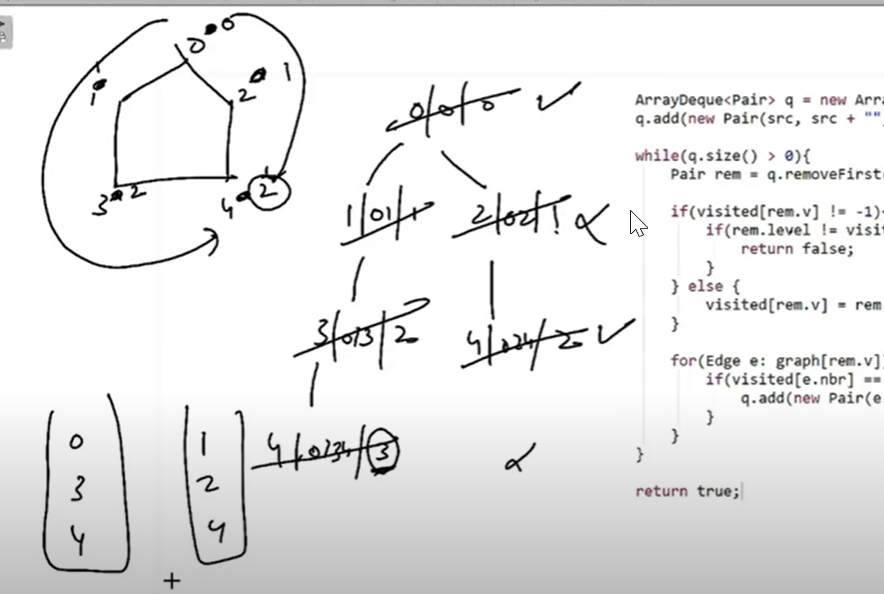 0 0
1
1
2 1
3 2
4 2
0/0/0
1/01/1
2/02/1
3/013/2
4/024/2
4/0134/3
0
3
4
1
2
4
ArrayDeque<Pair> q = new Arra
q.add(new Pair(src, src + ""
while(q.size() > 0){
Pair rem = q.removeFirst
if(visited[rem.v] != -1)
if(rem.level != visit
return false;
}
} else {
visited[rem.v] = rem
}
for(Edge e: graph[rem.v]
if(visited[e.nbr] ==
q.add(new Pair(e
}
}
}
return true;